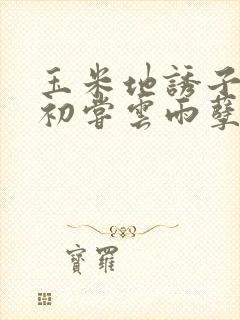 玉米地誘子
初嘗雲雨孽
寶羅